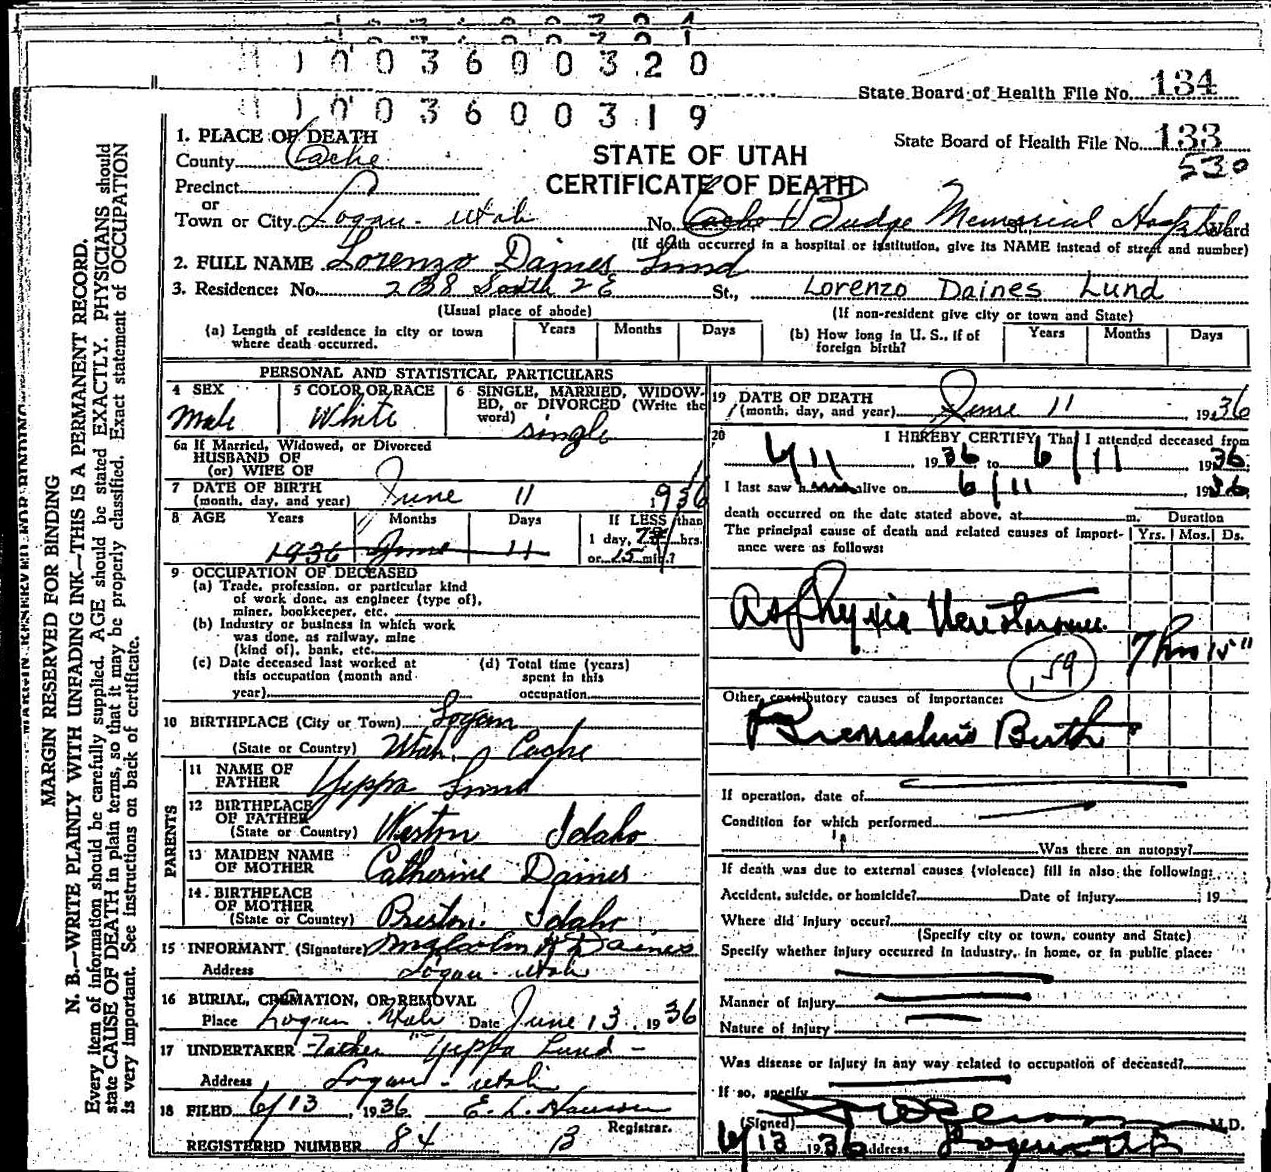 1 0 0 3 6 0 0 3 2 0
State Board of Health File No. 134
1 0 0 3 6 0 0 3 1 9
State Board of Health File No. 133
530
STATE OF UTAH
CERTIFICATE OF DEATH
1. PLACE OF DEATH
County Cache
Precinct
or
Town or City Logan - Utah No. Cache Budge Memorial Hospital Ward
(If death occurred in a hospital or institution, give its NAME instead of street and number)
2. FULL NAME Lorenzo Daines Lund
3. Residence: No. 238 South 2 E St., Lorenzo Daines Lund
(Usual place of abode) (If non-resident give city or town and State)
(a) Length of residence in city or town where death occurred. Years Months Days (b) How long in U. S., if of foreign birth? Years Months Days
PERSONAL AND STATISTICAL PARTICULARS
4 SEX Male
5 COLOR OR RACE White
6 SINGLE, MARRIED, WIDOWED, or DIVORCED (Write the word) single
6a If Married, Widowed, or Divorced
HUSBAND OF
(or) WIFE OF
7 DATE OF BIRTH
(month, day, and year) June 11 1936
8 AGE Years Months Days If LESS than
1936 June 11 1 day, 7 hrs.
or 15 min.?
9 OCCUPATION OF DECEASED
(a) Trade, profession, or particular kind
of work done, as engineer (type of),
miner, bookkeeper, etc.
(b) Industry or business in which work
was done, as railway, mine
(kind of), bank, etc.
(c) Date deceased last worked at this occupation (month and year)
(d) Total time (years) spent in this occupation
10 BIRTHPLACE (City or Town) Logan
(State or Country) Utah, Cache
PARENTS
11 NAME OF FATHER Yeppa Lund
12 BIRTHPLACE OF FATHER
(State or Country) Weston Idaho
13 MAIDEN NAME OF MOTHER Catherine Daines
14 BIRTHPLACE OF MOTHER
(State or Country) Preston, Idaho
15 INFORMANT (Signature) Malcolm Daines
Address Logan - Utah
16 BURIAL, CREMATION, OR REMOVAL
Place Logan, Utah Date June 13, 1936
17 UNDERTAKER Father Yeppa Lund -
Address Logan - Utah
18 FILED 6/13, 1936 E. L. Hansen
Registrar.
REGISTERED NUMBER 84 B
19 DATE OF DEATH
(month, day, and year) June 11 1936
20 I HEREBY CERTIFY, That I attended deceased from
6/11, 1936 to 6/11 1936
I last saw alive on 6/11, 1936
death occurred on the date stated above, at m. Duration
The principal cause of death and related causes of importance were as follows: Yrs. Mos. Ds.
Asphyxia 7 hrs 15"
159
Other contributory causes of importance:
Premature Birth
If operation, date of
Condition for which performed
Was there an autopsy?
If death was due to external causes (violence) fill in also the following:
Accident, suicide, or homicide? Date of injury 19
Where did injury occur?
(Specify city or town, county and State)
Specify whether injury occurred in industry, in home, or in public place:
Manner of injury
Nature of injury
Was disease or injury in any way related to occupation of deceased?
If so, specify
(Signed) M.D.
6/13 1936 Address Logan Ut
MARGIN RESERVED FOR BINDING
N. B.—WRITE PLAINLY WITH UNFADING INK—THIS IS A PERMANENT RECORD.
Every item of information should be carefully supplied. AGE should be stated EXACTLY. PHYSICIANS should
state CAUSE OF DEATH in plain terms, so that it may be properly classified. Exact statement of OCCUPATION
is very important. See instructions on back of certificate.